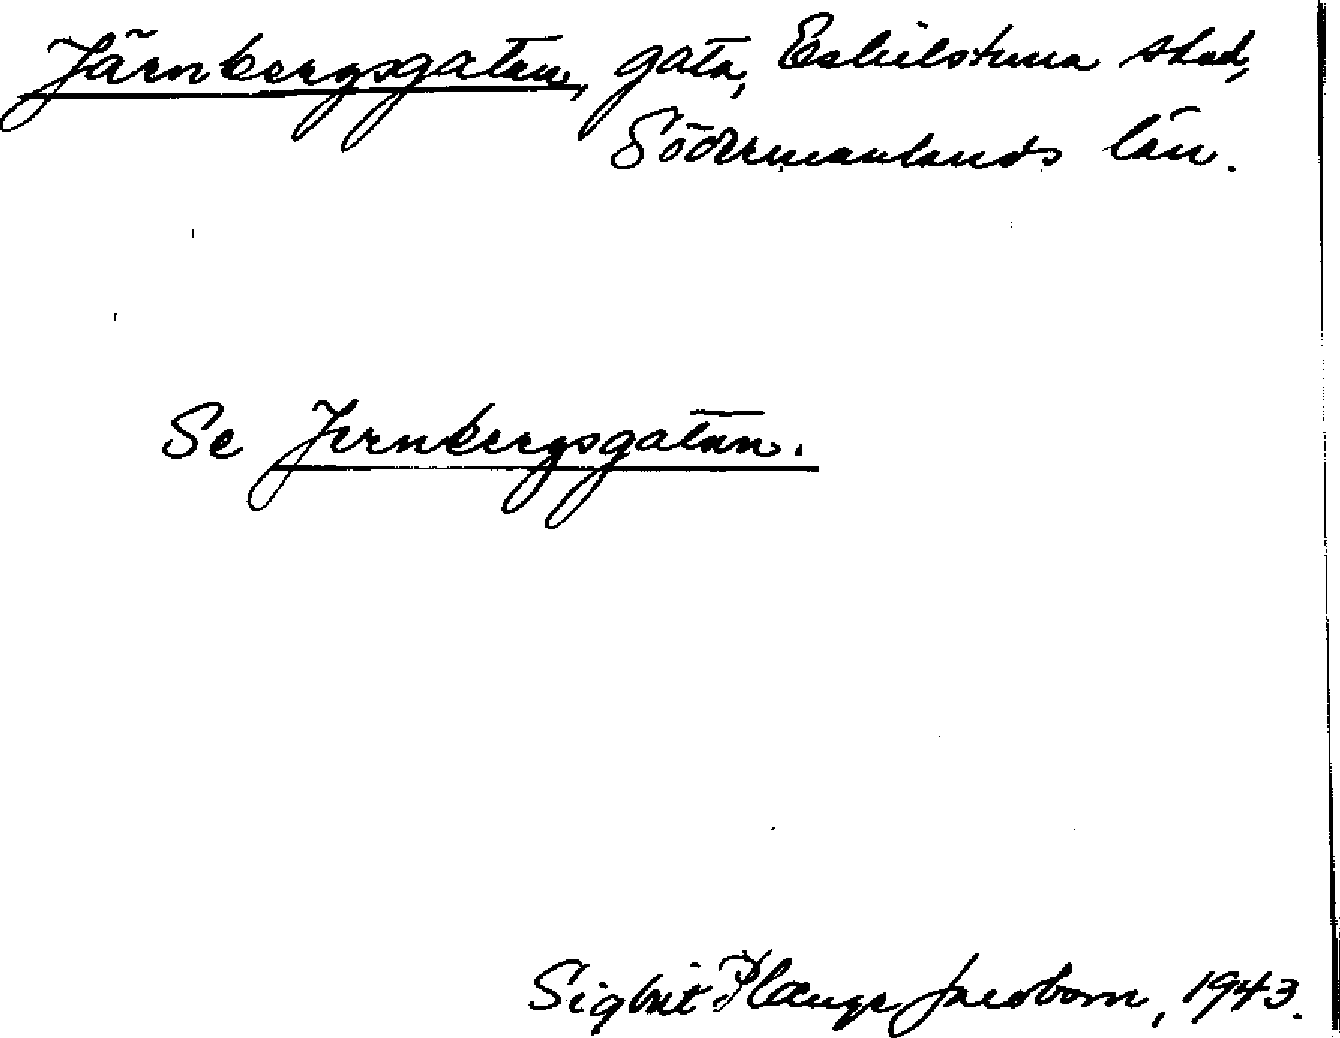 Järnbergsgatan, gata, Eskilstuna stad,
Södermanlands län.
Se Jernbergsgatan.
Sigbrit Plænge Jacobson, 1943.